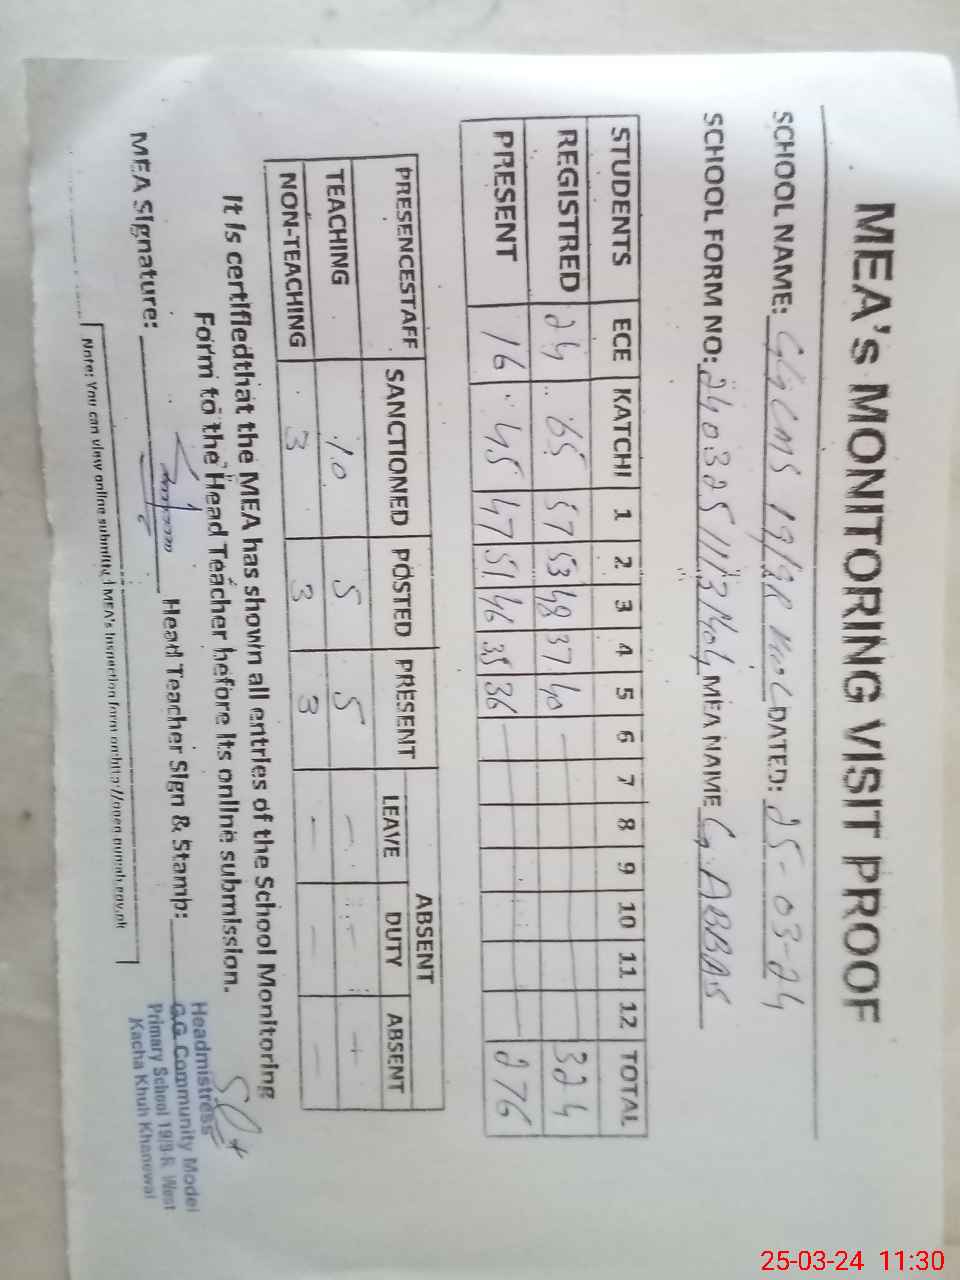 MEA's MONITORING VISIT PROOF
SCHOOL NAME: 19/9R DATED: 25-03-24
SCHOOL FORM NO: MEA NAME G. ABBAS
STUDENTS ECE KATCHI 1 2 3 4 5 6 7 8 9 10 11 12 TOTAL
REGISTRED 24 65 57 53 48 37 40 - 324
PRESENT 16 45 47 51 46 35 36 - 276
PRESENCESTAFF SANCTIONED POSTED PRESENT ABSENT
LEAVE DUTY ABSENT
TEACHING 10 5 5 - -
NON-TEACHING 3 3 3 - - -
It is certifiedthat the MEA has shown all entries of the School Monitoring
Form to the Head Teacher before its online submission.
MEA Signature: Head Teacher Sign & Stamp:
Headmistress
G.G. Community Model
Primary School 19/9-R West
Kacha Khuh Khanewal
Note: You can view online submitted MEA's Inspection form on:http://open.punjab.gov.pk
25-03-24 11:30